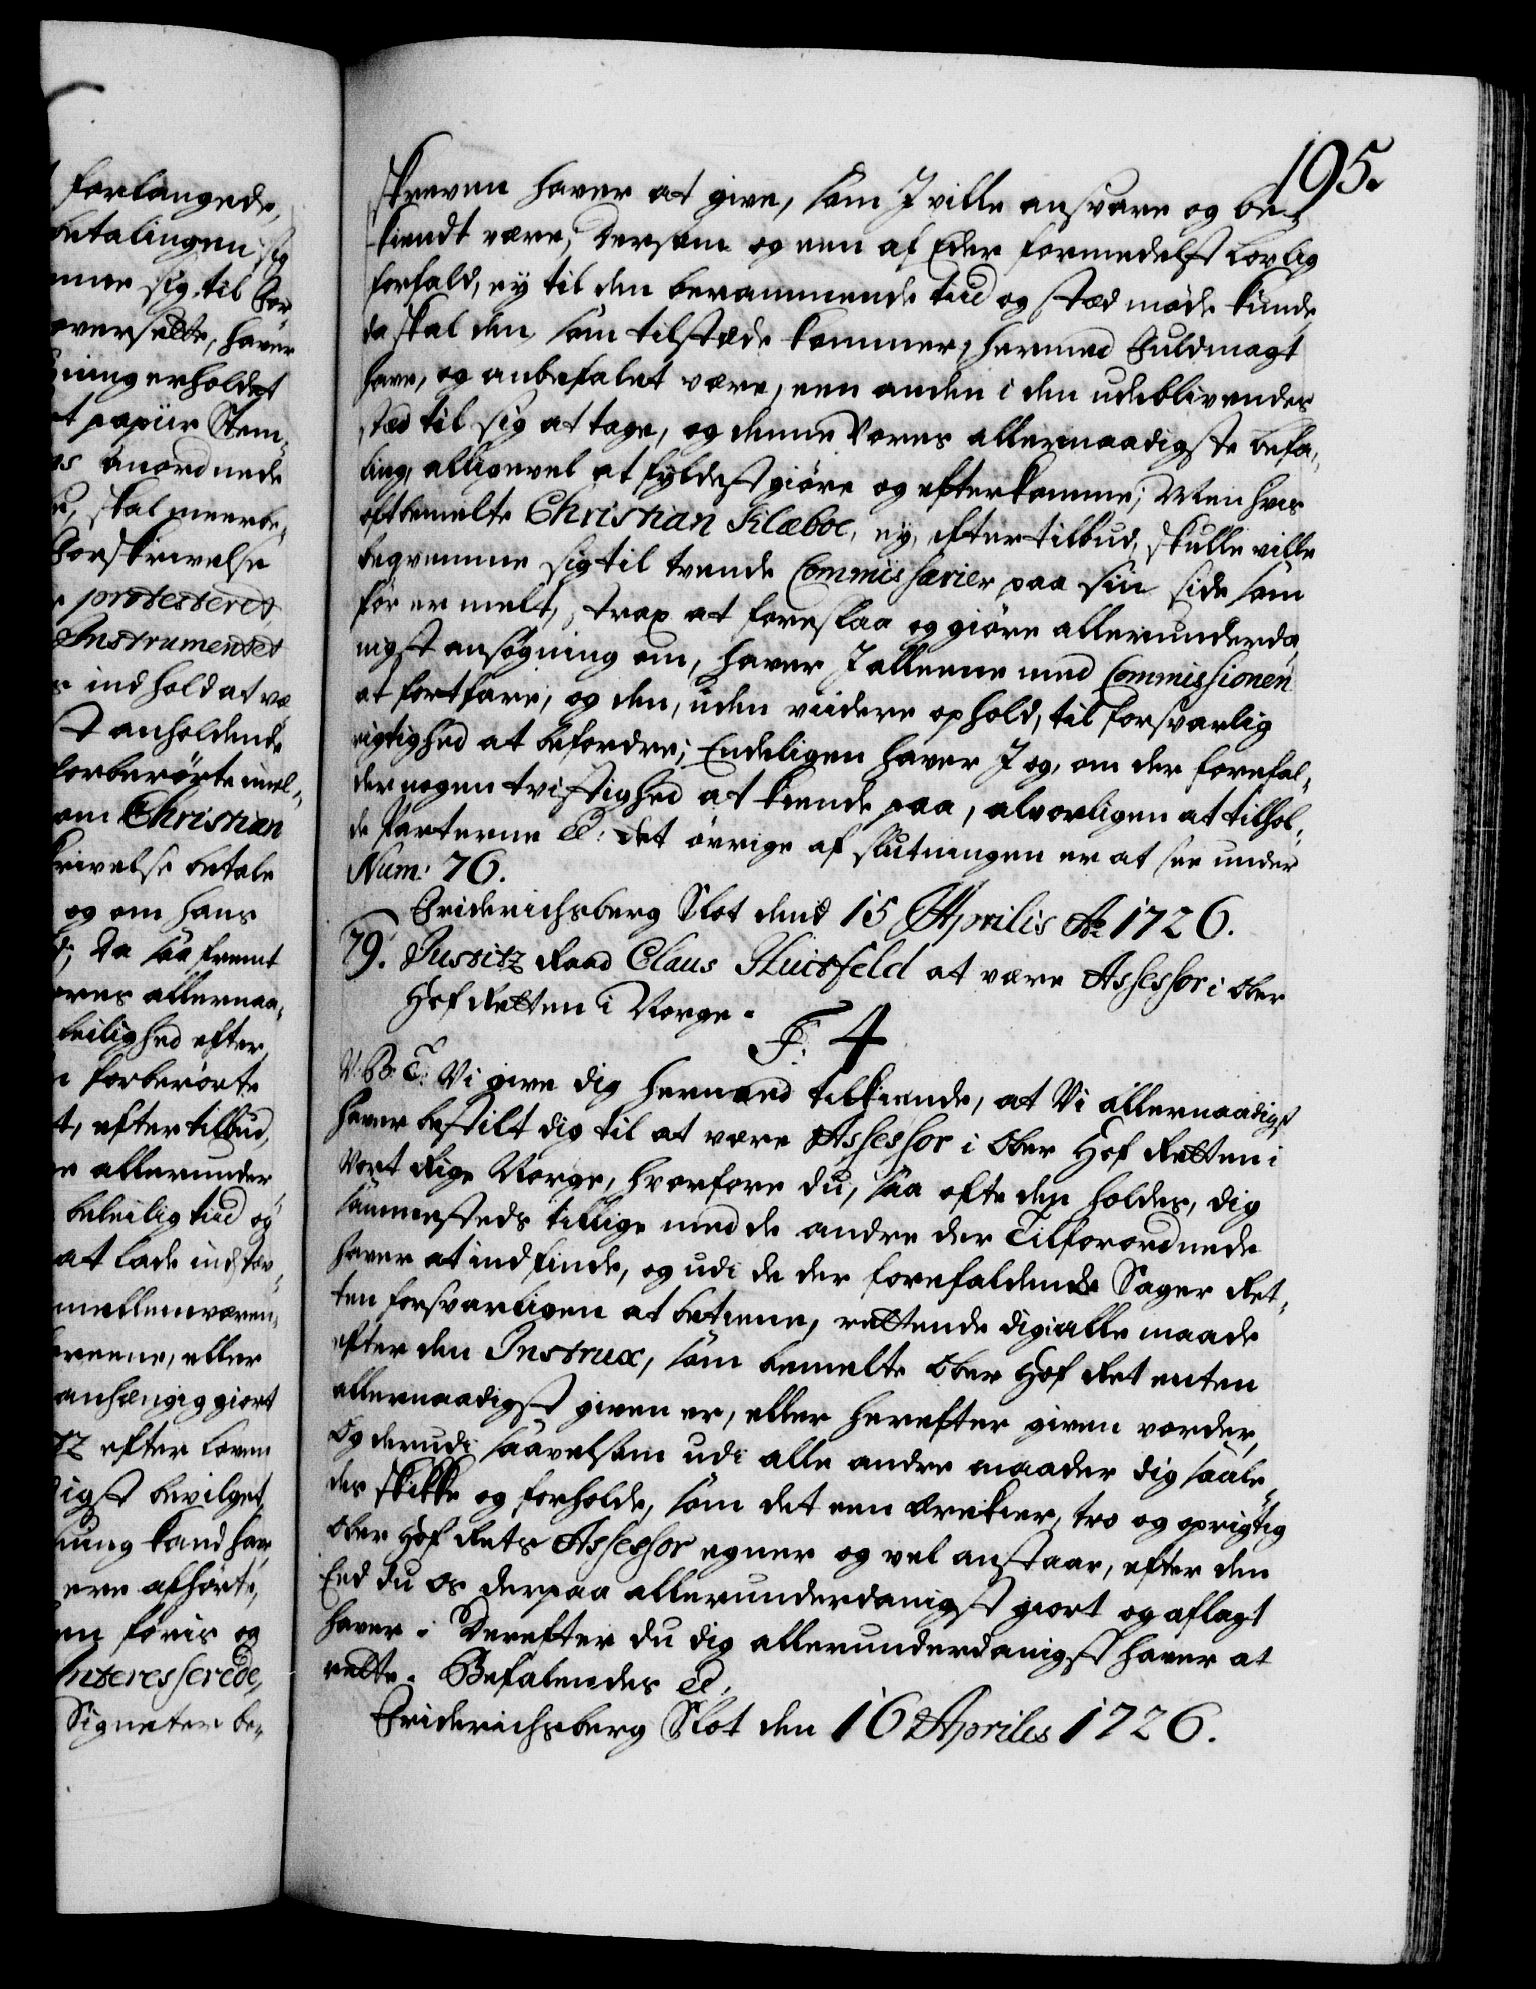 195.
skreven haver at give, som I ville ansvare og be-
kiendt være; Dersom og een af Eder formedelst Lovlig
forfald, ey til den berammende tiid og stæd møde kunde,
da skal den, som tilstæde kommer, hermed Fuldmagt
have, og anbefalet være, een anden i den udeblivendes
stæd til sig at tage, og denne Vores allernaadigste befa-
ling, alligevel at fyldestgiøre og efterkomme; Men hvis
oftbemelte Christian Klæboe, ey, efter tilbud, skulle ville
beqvemme sig til tvende Commissarier paa sin side som
før er melt, strax at foreslaa og giøre allerunderda-
nigst ansøgning om, haver I alleene med Commissionen
at fortfare, og den, uden viidere ophold, til forsvarlig
rigtighed at befordre; Endeligen haver I og, om der forefal-
der nogen tvistighed at kiende paa, alvorligen at tilhol-
de Parterne &: Det øvrige af slutningen er at see under
Num: 76.
Friderichsberg Slot dend 15 Aprilis Ao 1726.
79. Justitz Raad Claus Huitfeld at være Assessor i Ober
Hof Retten i Norge.
F: 4
V: B: T: Vi give dig hermed tilkiende, at Vi allernaadigst
haver bestilt dig til at være Assessor i Ober Hof Retten i
Vort Rige Norge, hvorfore du, saa ofte den holdes, dig
sammesteds tillige med de andre der Tilforordnede
haver at indfinde, og udi de der forefaldende Sager Ret-
ten forsvarligen at betiene, rettende dig i alle maade
efter den Instrux, som bemelte Ober Hof Ret enten
allernaadigst given er, eller herefter given vorder,
Og derudi saavelsom udi alle andre maader dig saale-
des skikke og forholde, som det een ærekier, tro og oprigtig
Ober Hof Rets Assessor egner og vel anstaar, efter den
Eed du os derpaa allerunderdanigst giort og aflagt
haver. Derefter du dig allerunderdanigst haver at
rette. Befalendes &.
Friderichsberg Slot den 16 Aprilis 1726.